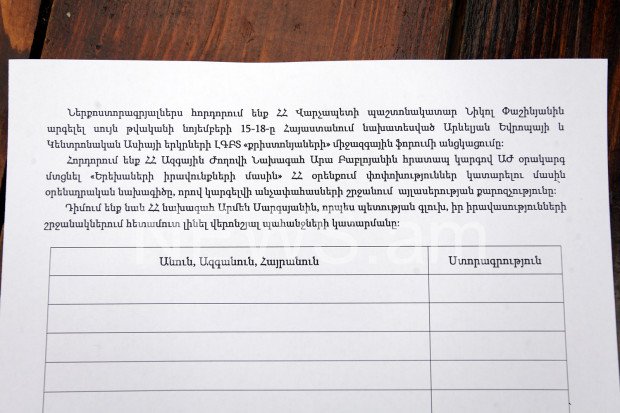 Ներքոստորագրյալներս հորդորում ենք ՀՀ Վարչապետի պաշտոնակատար Նիկոլ Փաշինյանին
արգելել սույն թվականի նոյեմբերի 15-18-ը Հայաստանում նախատեսված Արևելյան Եվրոպայի և
Կենտրոնական Ասիայի երկրների ԼԳԲՏ «քրիստոնյաների» միջազգային ֆորումի անցկացումը:
Հորդորում ենք ՀՀ Ազգային Ժողովի Նախագահ Արա Բաբլոյանին հրատապ կարգով ԱԺ օրակարգ
մտցնել «Երեխաների իրավունքների մասին» ՀՀ օրենքում փոփոխություններ կատարելու մասին
օրենսդրական նախագիծը, որով կարգելվի անչափահասների շրջանում այլասերության քարոզչությունը:
Դիմում ենք նաև ՀՀ նախագահ Արմեն Սարգսյանին, որպես պետության գլուխ, իր իրավասությունների
շրջանակներում հետամուտ լինել վերոնշյալ պահանջների կատարմանը:
Անուն, Ազգանուն, Հայրանուն Ստորագրություն
NEWS.am